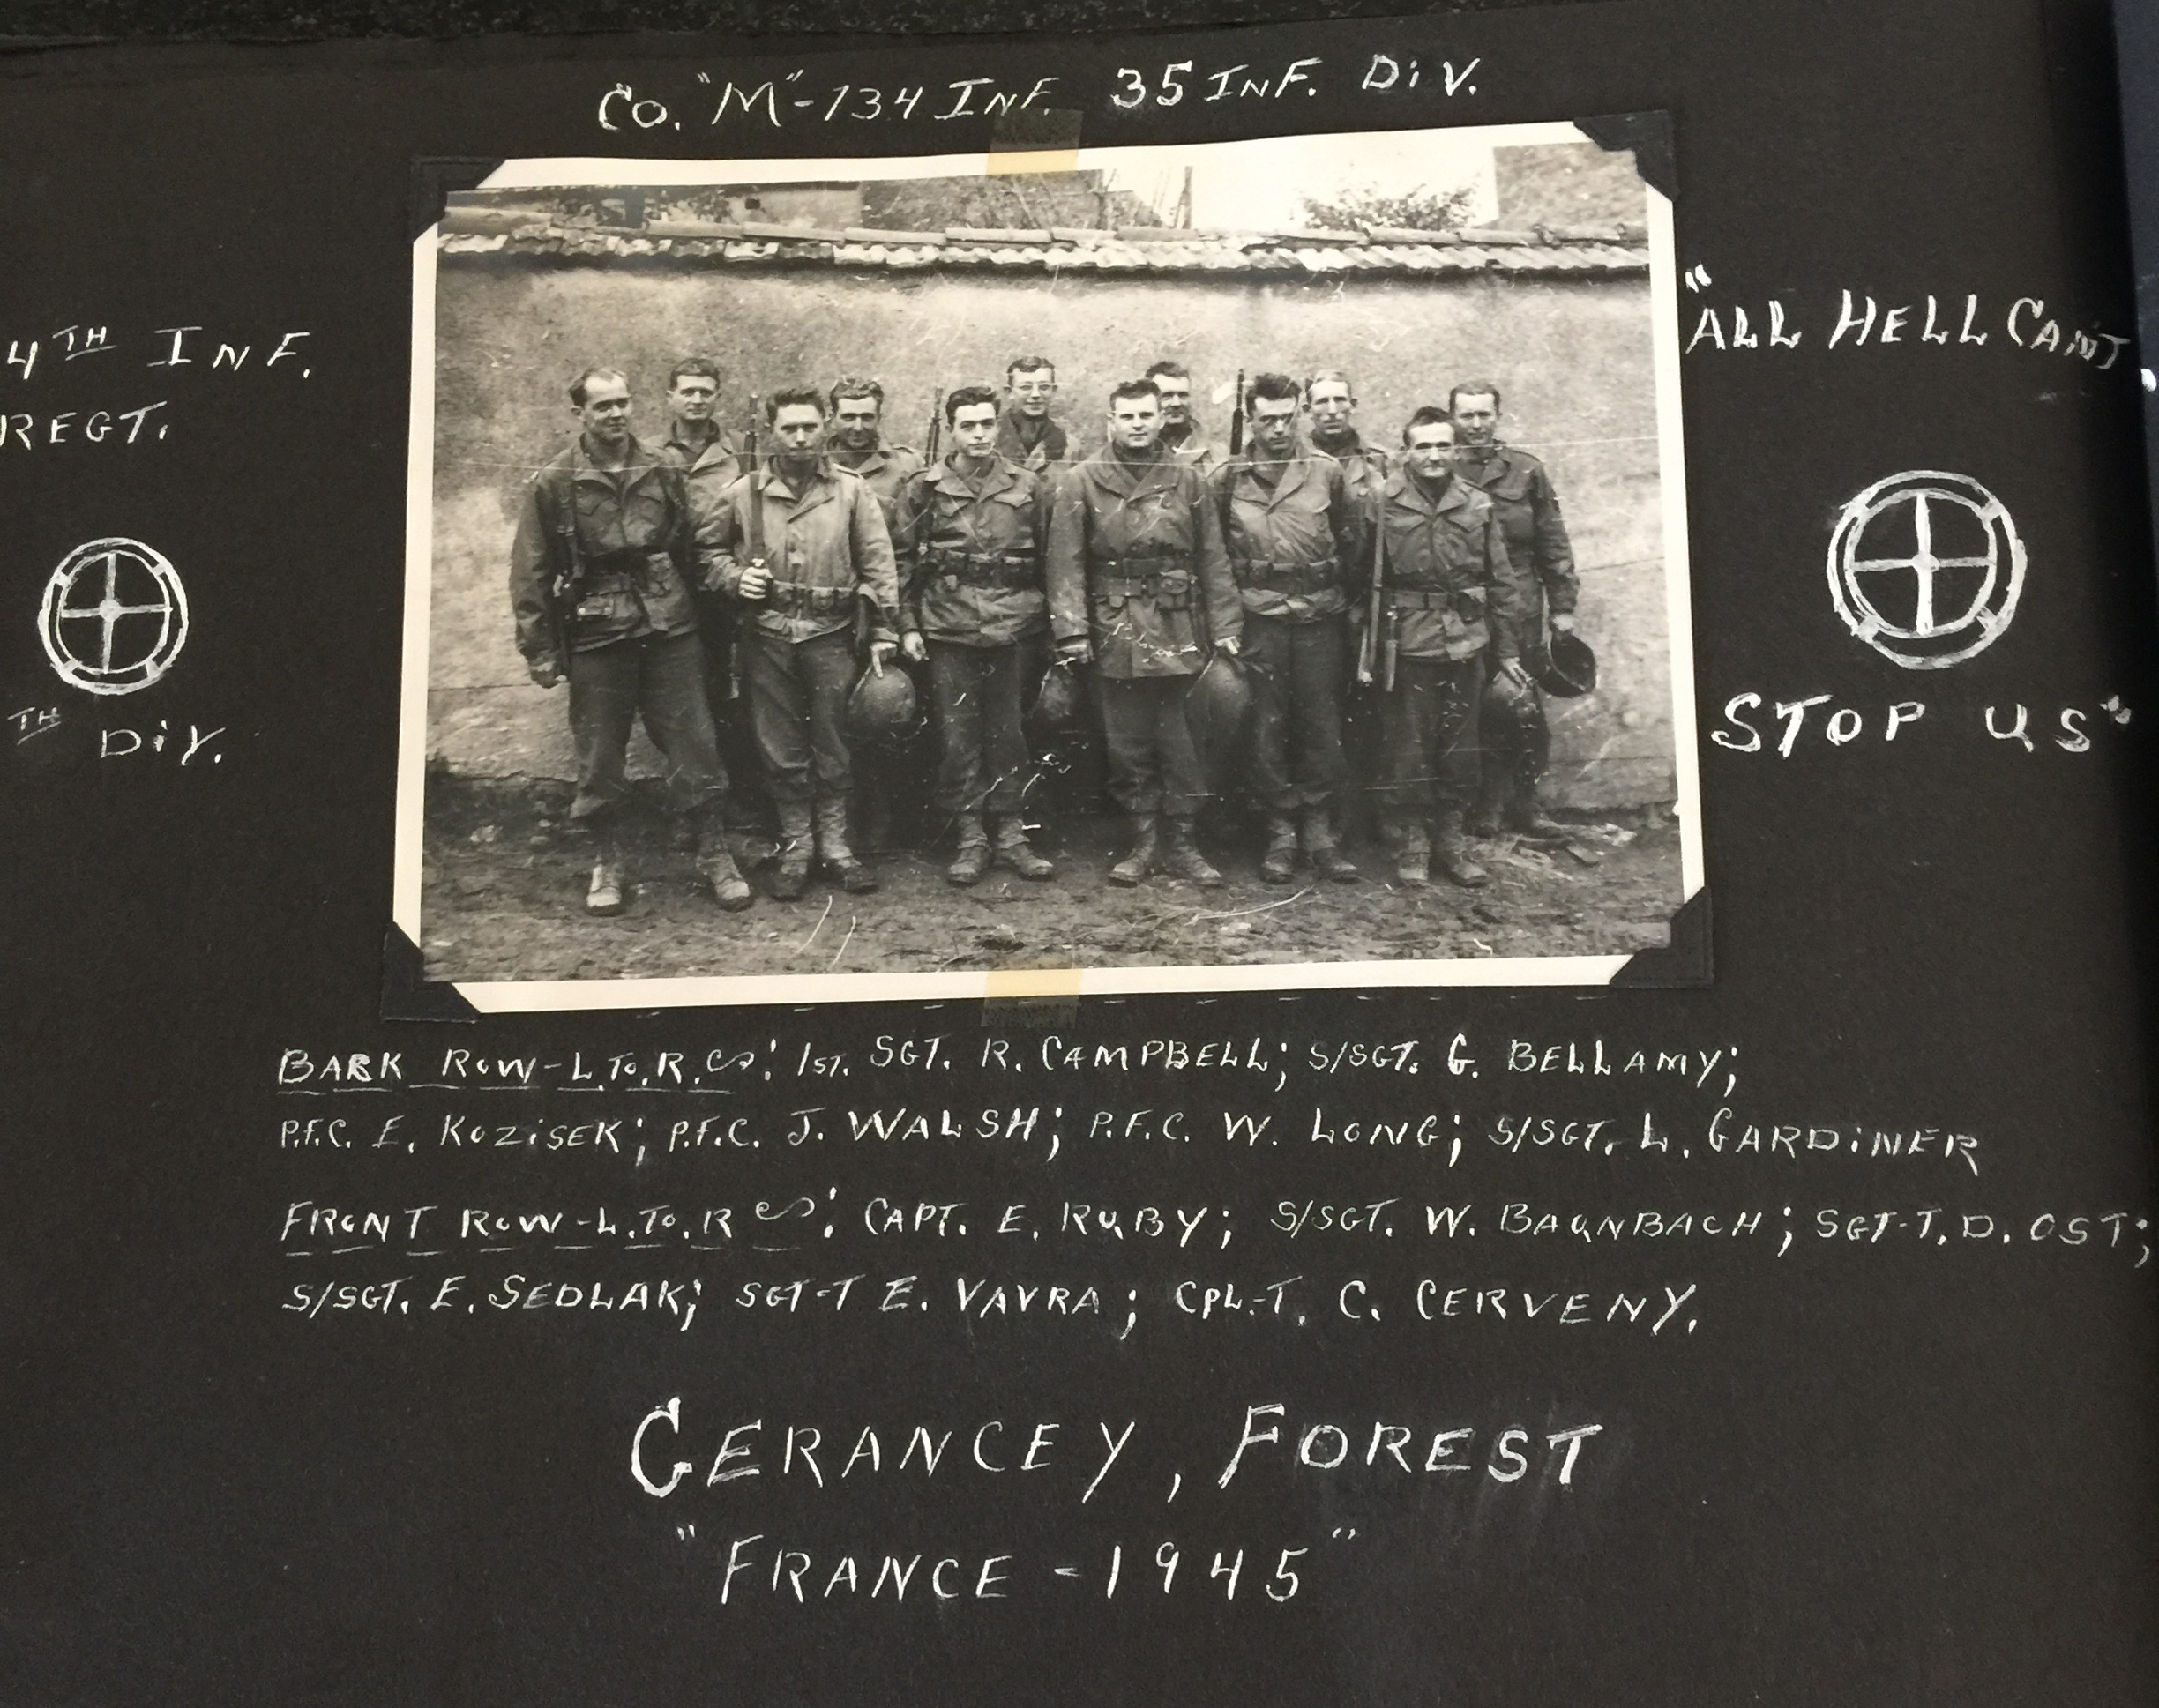 Co. "M"-134 INF. 35 INF. DiV.
4TH INF.
REGT.
TH DiV.
"ALL HELL CAN'T
STOP US"
BACK ROW-L.To.R.: 1ST. SGT. R. CAMPBELL; S/SGT. G. BELLAMY;
P.F.C. E. KOZiSEK; P.F.C. J. WALSH; P.F.C. W. LONG; S/SGT. L. GARDiNER
FRONT ROW-L.To.R: CAPT. E. RUBY; S/SGT. W. BAUNBACH; SGT-T. D. OST;
S/SGT. E. SEDLAK; SGT-T E. VAVRA; CPL.-T. C. CERVENY.
GERANCEY, FOREST
"FRANCE - 1945"